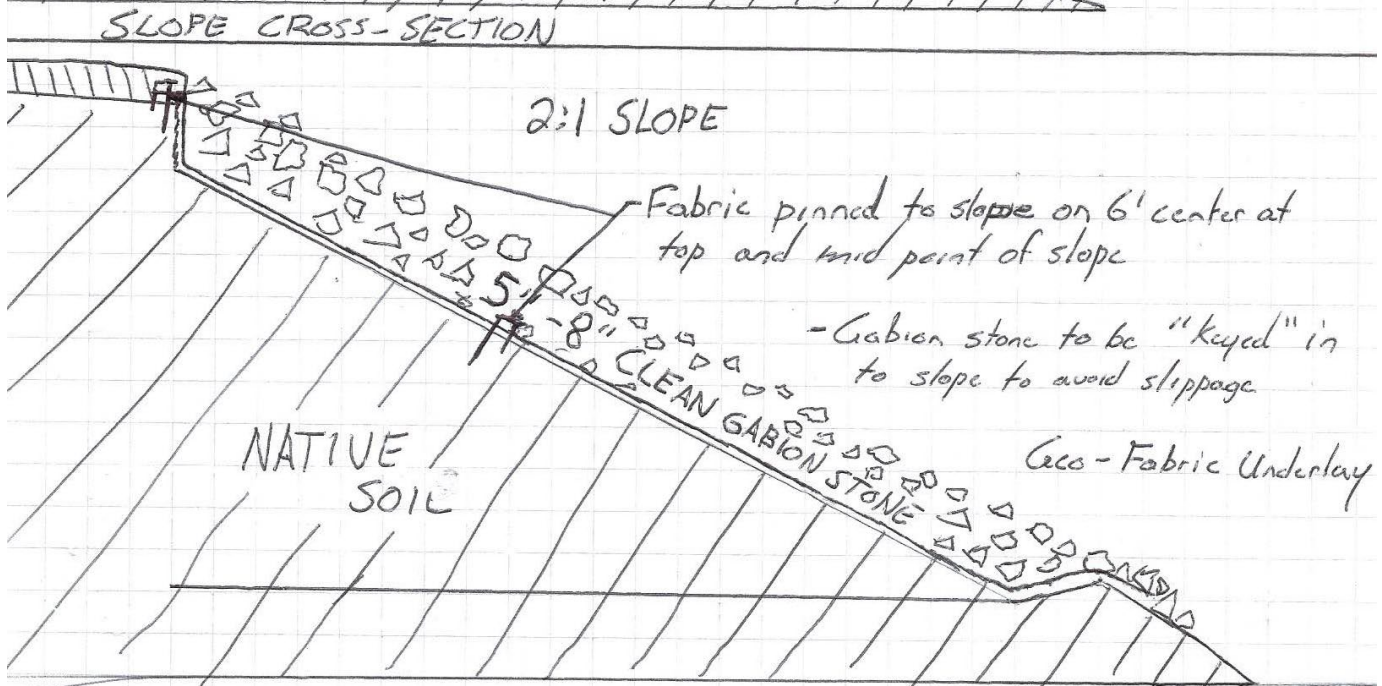 SLOPE CROSS-SECTION
2:1 SLOPE
-Fabric pinned to slope on 6' center at
top and mid point of slope
-Gabion stone to be "Keyed" in
to slope to avoid slippage
Geo-Fabric Underlay
5"-8" CLEAN GABION STONE
NATIVE
SOIL